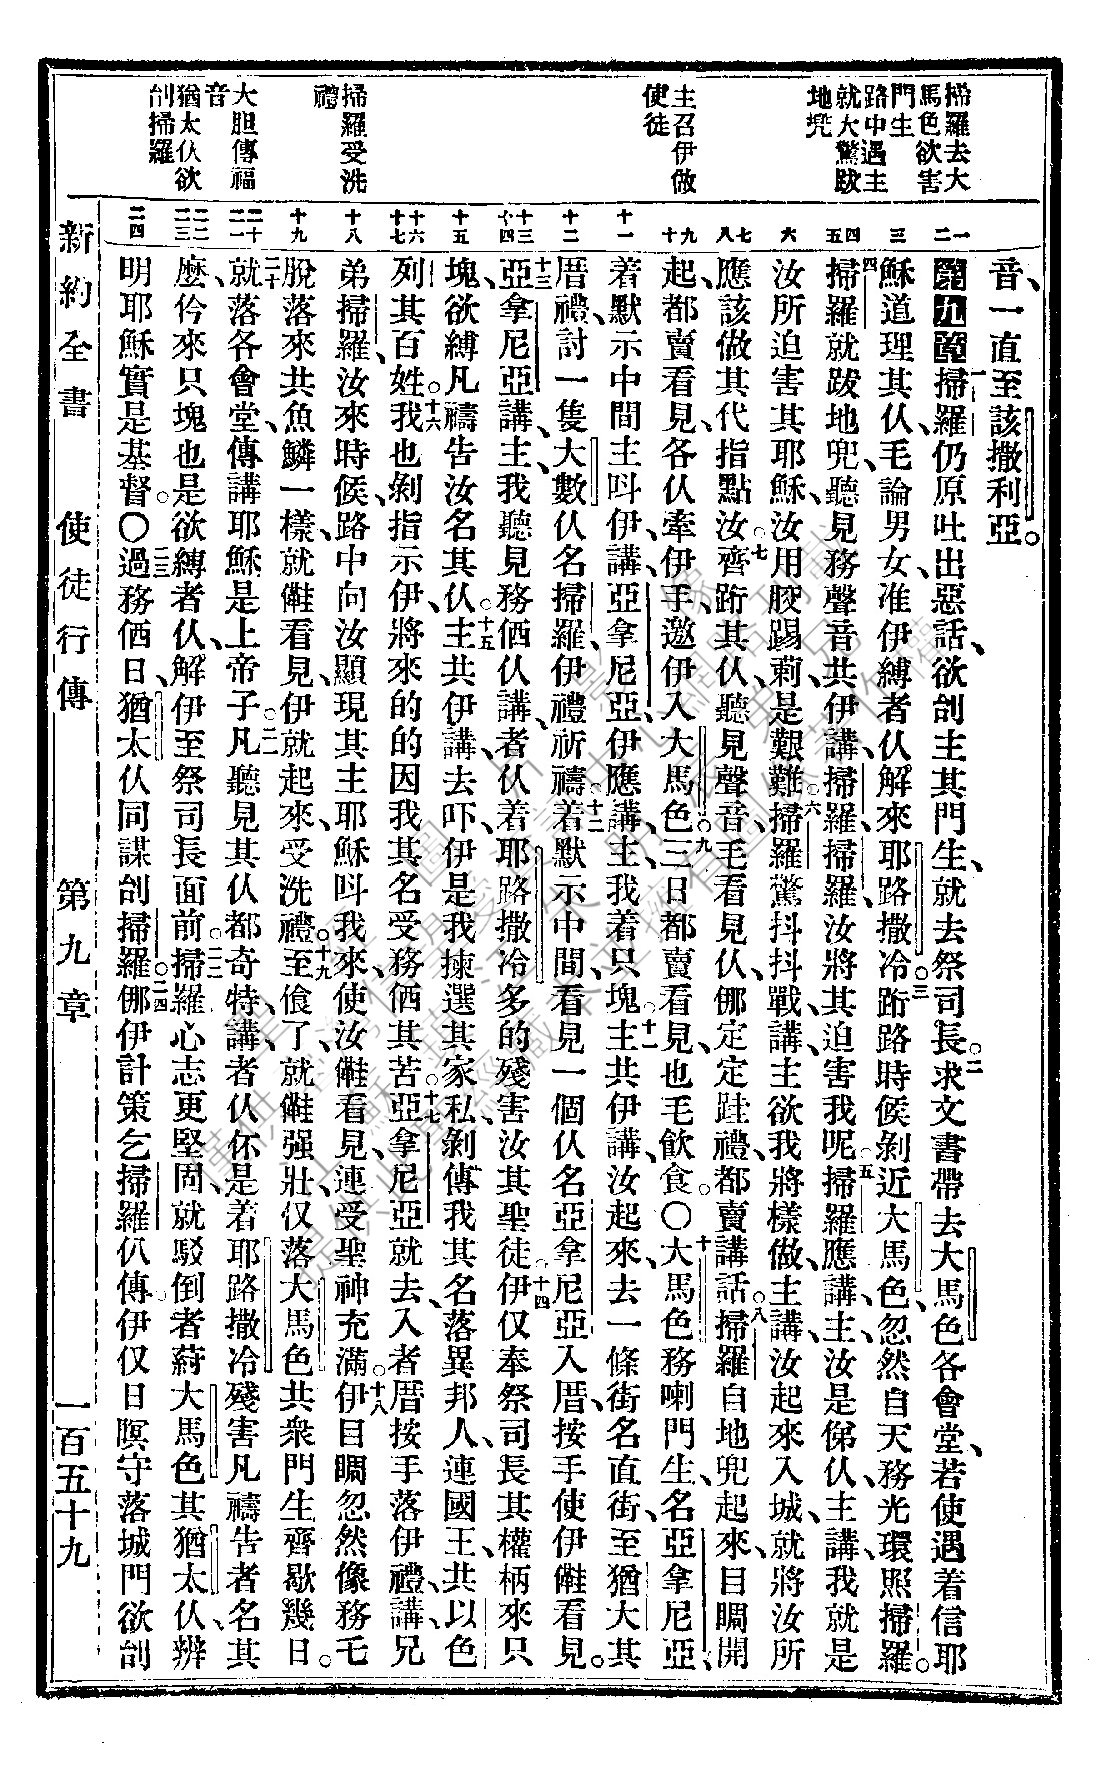 掃羅去大
馬色欲害
門生
路中遇主
就大驚跋
地兜
主召伊做
使徒
掃羅受洗
禮
大胆傳福
音
猶太仸欲
刣掃羅
音、一直至該撒利亞。
第九章掃羅仍原吐出惡話、欲刣主其門生、就去祭司長。二求文書帶去大馬色各會堂、若使遇着信耶
穌道理其仸、毛論男女、准伊縛者仸解來耶路撒冷。三跡路時候、剝近大馬色、忽然自天務光環照掃羅。
四掃羅就跋地兜、聽見務聲音共伊講、掃羅、掃羅、汝將其迫害我呢。五掃羅應講、主、汝是俤仸、主講、我就是
汝所迫害其耶穌、汝用骹踢莿是艱難。六掃羅驚抖抖戰、講、主欲我將樣做、主講、汝起來入城、就將汝所
應該做其代指點汝。七齊跡其仸、聽見聲音、毛看見仸、㑚定定跬禮、都賣講話。八掃羅自地兜起來、目睭開
起、都賣看見、各仸牽伊手、邀伊入大馬色。九三日都賣看見、也毛飲食。〇十大馬色務喇門生、名亞拿尼亞、
着默示中間、主呌伊講、亞拿尼亞、伊應講、主、我着只塊。十一主共伊講、汝起來、去一條街名直街、至猶大其
厝禮、討一隻大數仸名掃羅、伊禮祈禱。十二着默示中間、看見一個仸名亞拿尼亞、入厝、按手使伊儺看見。
十三亞拿尼亞講、主、我聽見務㑑仸講、者仸着耶路撒冷多的殘害汝其聖徒。十四伊仅奉祭司長其權柄來只
塊、欲縛凡禱告汝名其仸。十五主共伊講、去吓、伊是我揀選其家私、剝傳我其名落異邦人、連國王、共以色
列其百姓。十六我也剝指示伊、將來的的因我其名受務㑑其苦。十七亞拿尼亞就去入者厝、按手落伊禮、講、兄
弟掃羅、汝來時候、路中向汝顯現其主耶穌呌我來、使汝儺看見、連受聖神充滿。十八伊目睭忽然像務毛
脫落來、共魚鱗一樣、就儺看見、伊就起來、受洗禮。十九至飡了、就儺强壯、仅落大馬色共衆門生齊歇幾日。
二十就落各會堂、傳講耶穌是上帝子。二一凡聽見其仸都奇特、講、者仸伓是着耶路撒冷殘害凡禱告者名其
麽、仱來只塊、也是欲縛者仸、解伊至祭司長面前。二二掃羅心志更堅固、就駁倒者蒔大馬色其猶太仸、辨
明耶穌實是基督。〇二三過務㑑日、猶太仸同謀刣掃羅。二四㑚伊計策乞掃羅仈傳、伊仅日暝守落城門欲刣
新約全書　使徒行傳　第九章　一百五十九